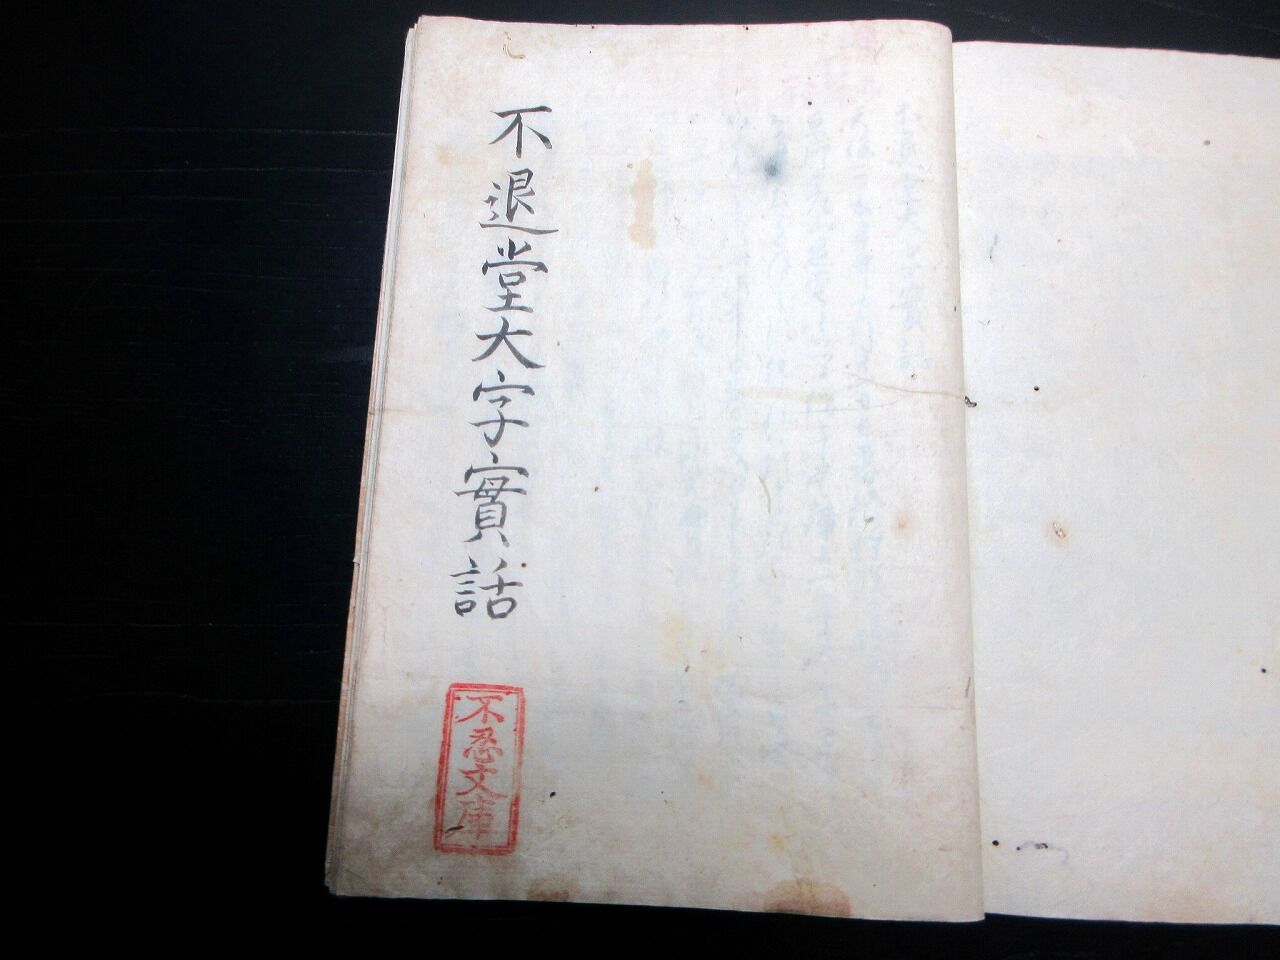 不退堂大字實話
不忍文庫